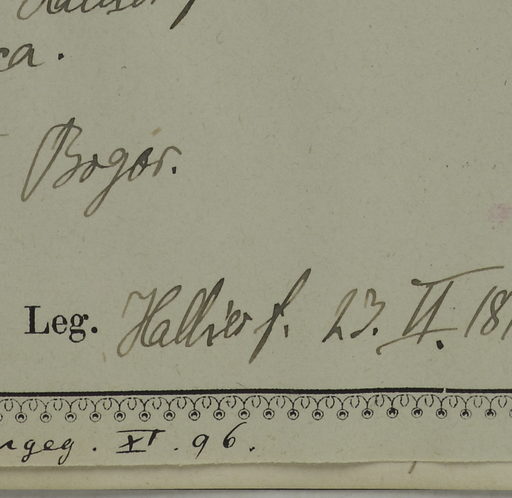 Hallier f
ca.
Bogor.
Leg. Hallier f. 23. II. 18
ngeg. XI. 96.